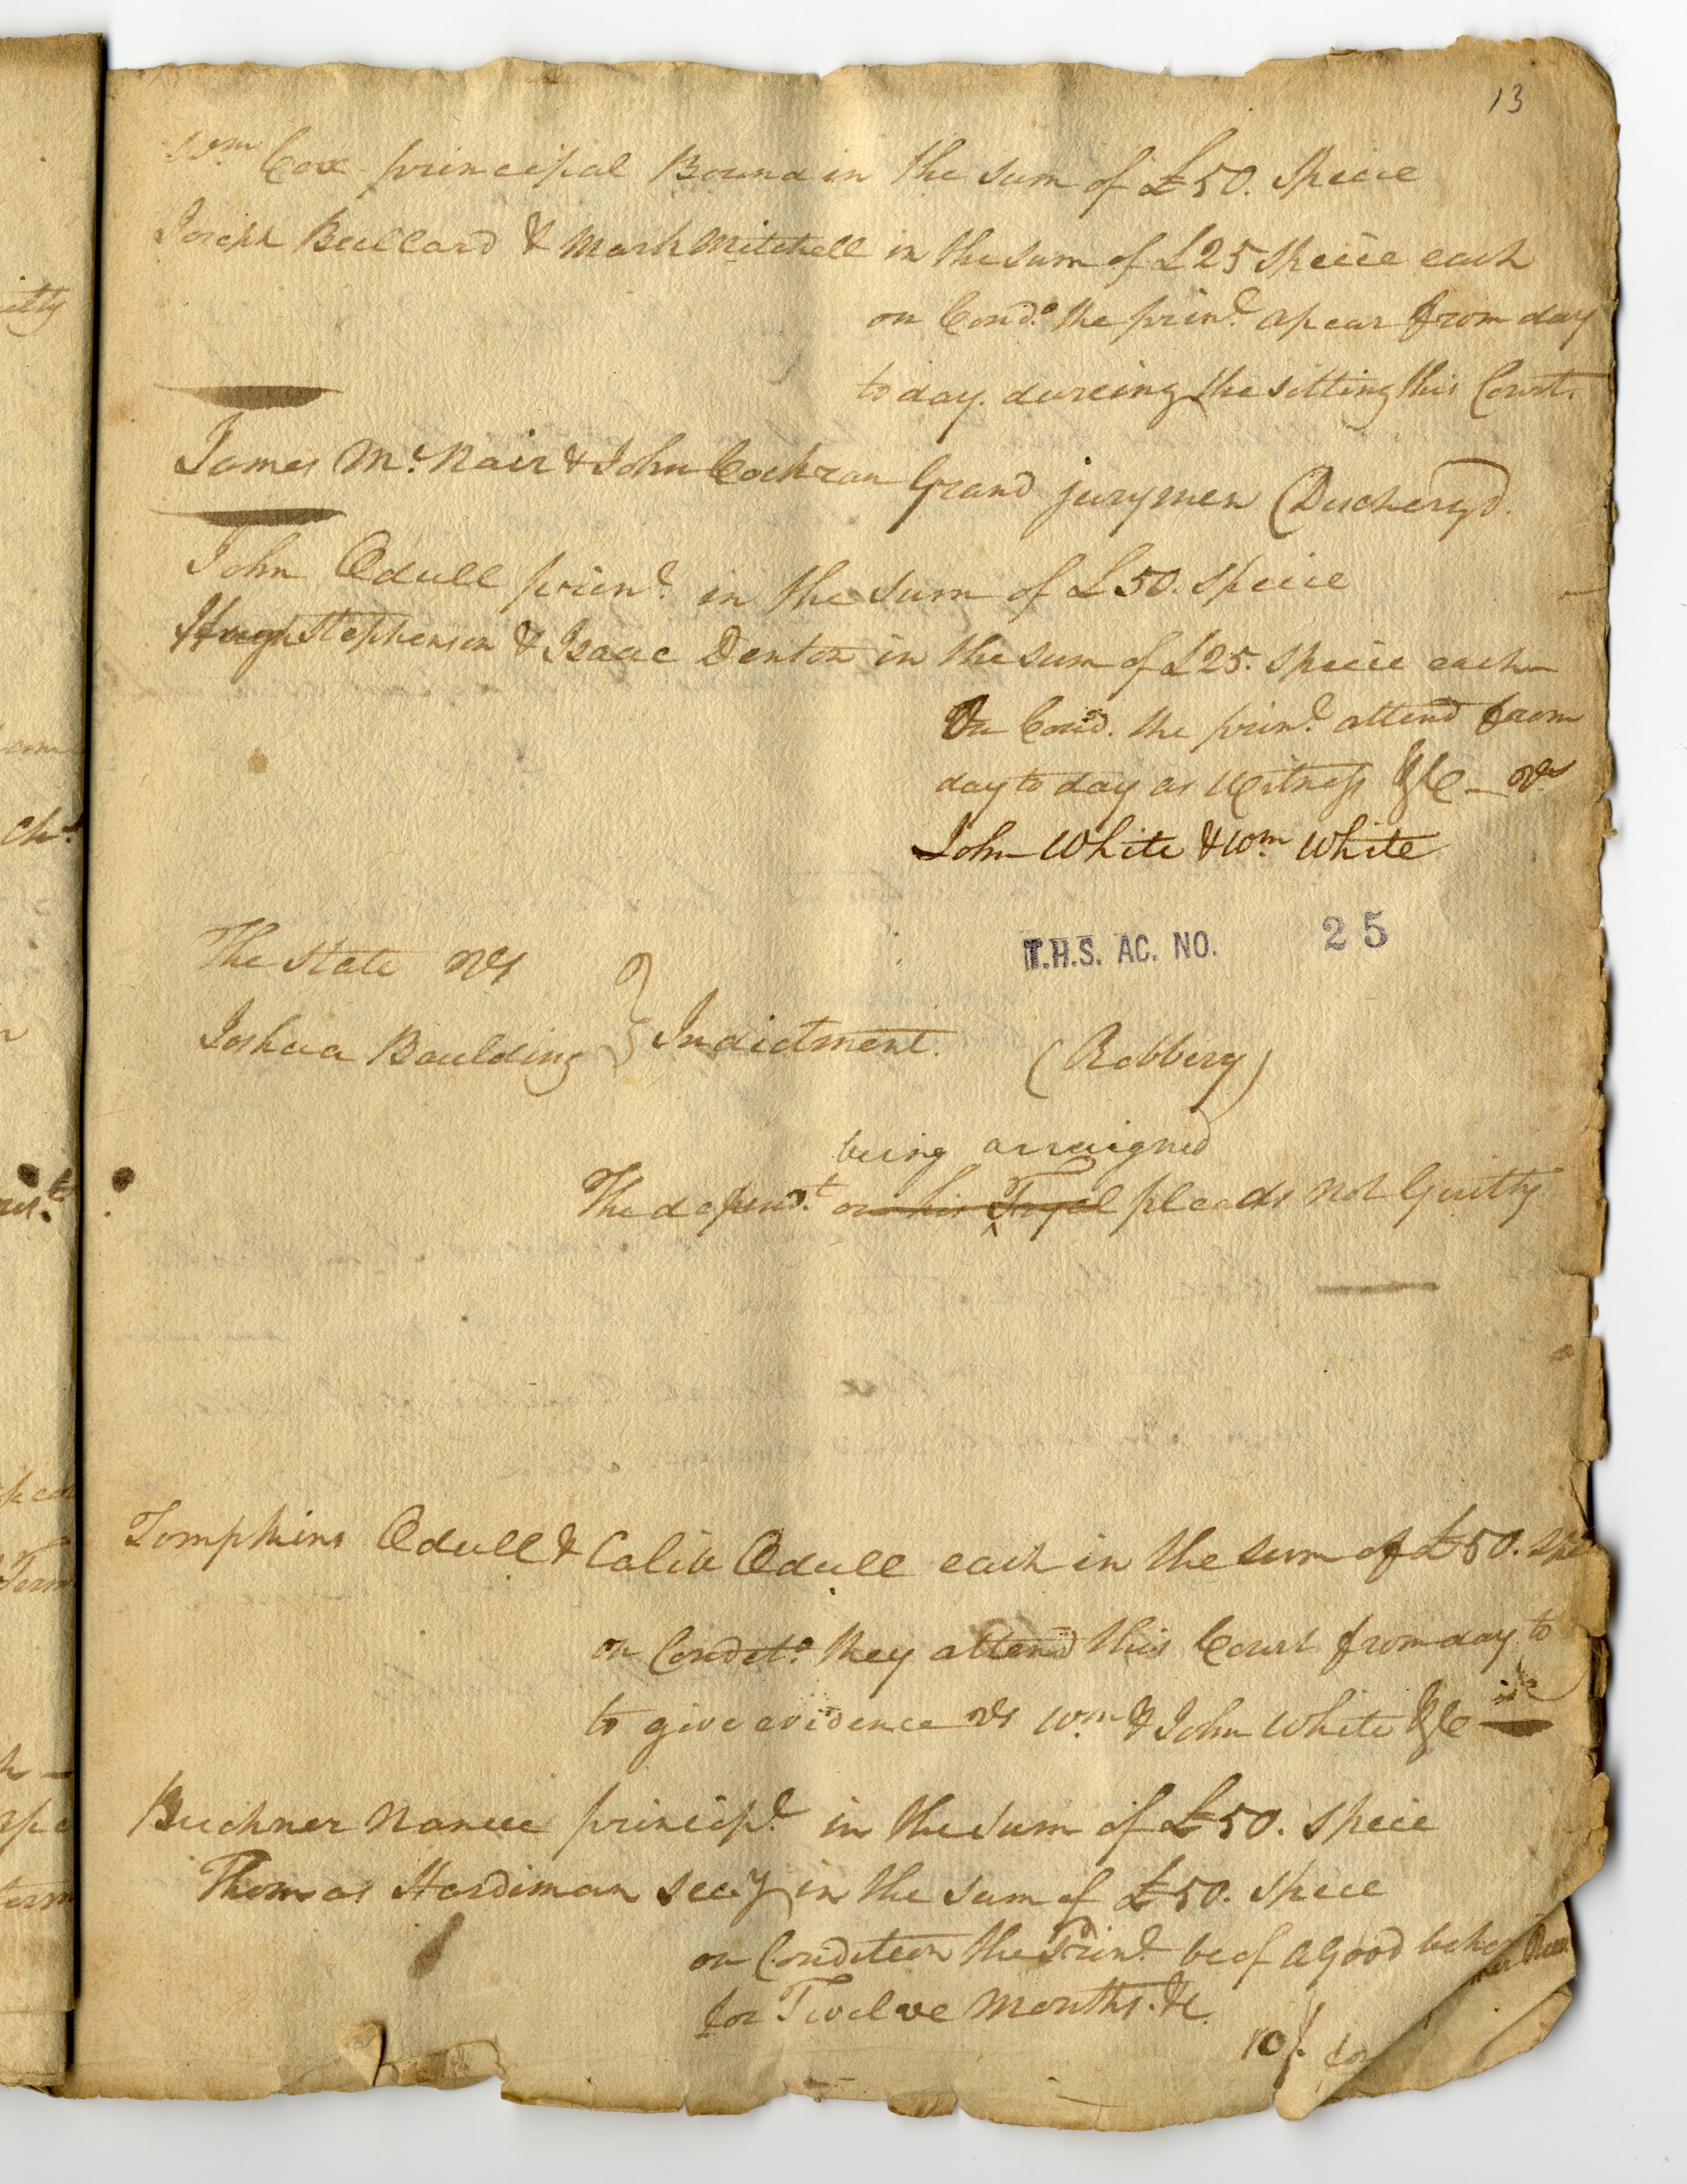 13
Wm Cox principal Bound in the sum of £50. Specie
Joseph Bullard & Mark Mitchell in the sum of £25 Specie each
on Condo. the prinl. apear from day
to day. dureing the sitting this Court.
James Mc. Nair & John Cochran Grand jurymen (Discharg'd.
John Odull prinl. in the sum of £50. Specie
Hugh Stephenson & Isaac Denton in the sum of £25. Specie each
On Cond. the prinl. attend from
day to day as Witness &C — vs
John White & Wm. White
T.H.S. AC. NO. 25
The State vs
Joshua Baulding } Indictment. (Robbery)
being arraigned
The defend.t on his Tryal pleads Not Guilty
Tompkins Odull & Calib Odull each in the sum of £50. Spe
on Condito. they attend this Court from day to
to give evidence vs Wm. & John White &C
Buckner Nance principl. in the sum of £50. Specie
Thomas Hardiman secy in the sum of £50. Specie
on Condition the Prinl. be of a good beha
for Twelve Months. &c.
10/. for